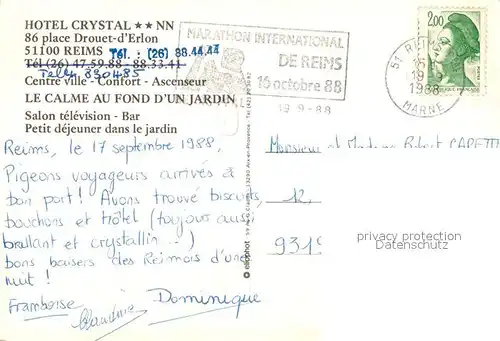 HOTEL CRYSTAL ★★ NN
86 place Drouet-d'Erlon
51100 REIMS Tél. : (26) 88.44.44
Tél (26) 47.59.88 - 88.33.41
Telex 830485
Centre ville - Confort - Ascenseur
LE CALME AU FOND D'UN JARDIN
Salon télévision - Bar
Petit déjeuner dans le jardin
MARATHON INTERNATIONAL
DE REIMS
16 octobre 88
19-9-88
2,00
51 REIMS
19-9
1988
MARNE
Reims, le 17 septembre 1988,
Pigeons voyageurs arrivés à
bon port ! Avons trouvé biscuits,
bouchons et hôtel (toujours aussi
brillant et crystallin...)
bons baisers des Rémois d'une
nuit !
Framboise Claudine Dominique
elliophot
Monsieur et Madame Robert
12,
9319
privacy protection
Datenschutz